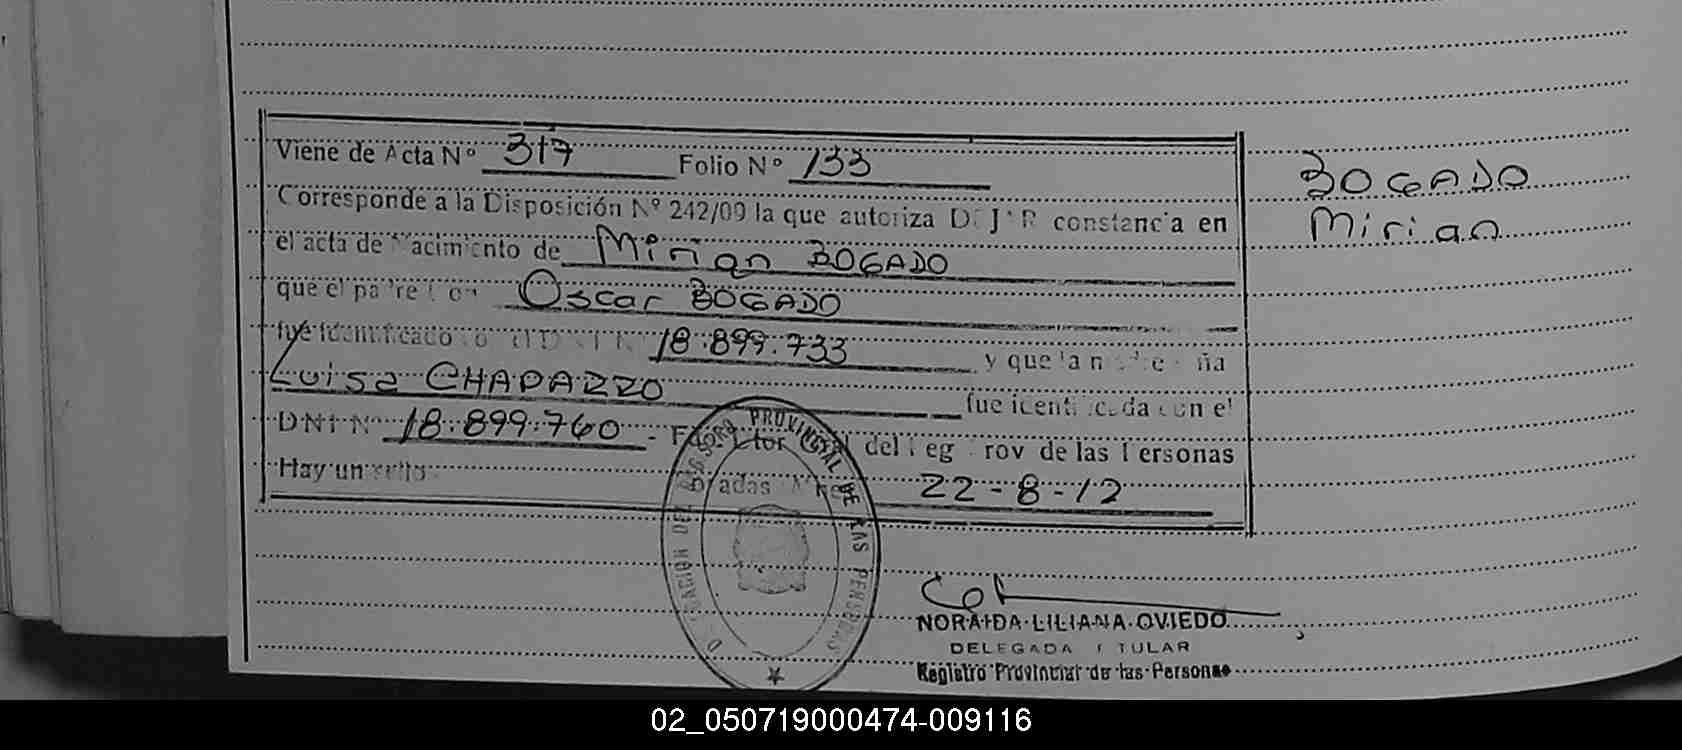 Viene de Acta Nº 317 Folio Nº 133
Corresponde a la Disposición Nº 242/09 la que autoriza D. J. R constancia en
el acta de Nacimiento de Mirian BOGADO
que el padre Don Oscar BOGADO
fue identificado DNI Nº 18.899.733 y que la madre ña
Luisa CHAPARRO fue identificada con el
DNI Nº 18.899.760 - F del Reg Prov de las Personas
Hay un sello 22-8-12
BOGADO
Mirian
DELEGACION DEL REGISTRO PROVINCIAL DE LAS PERSONAS
NORAIDA LILIANA OVIEDO
DELEGADA TITULAR
Registro Provincial de las Personas
02_050719000474-009116